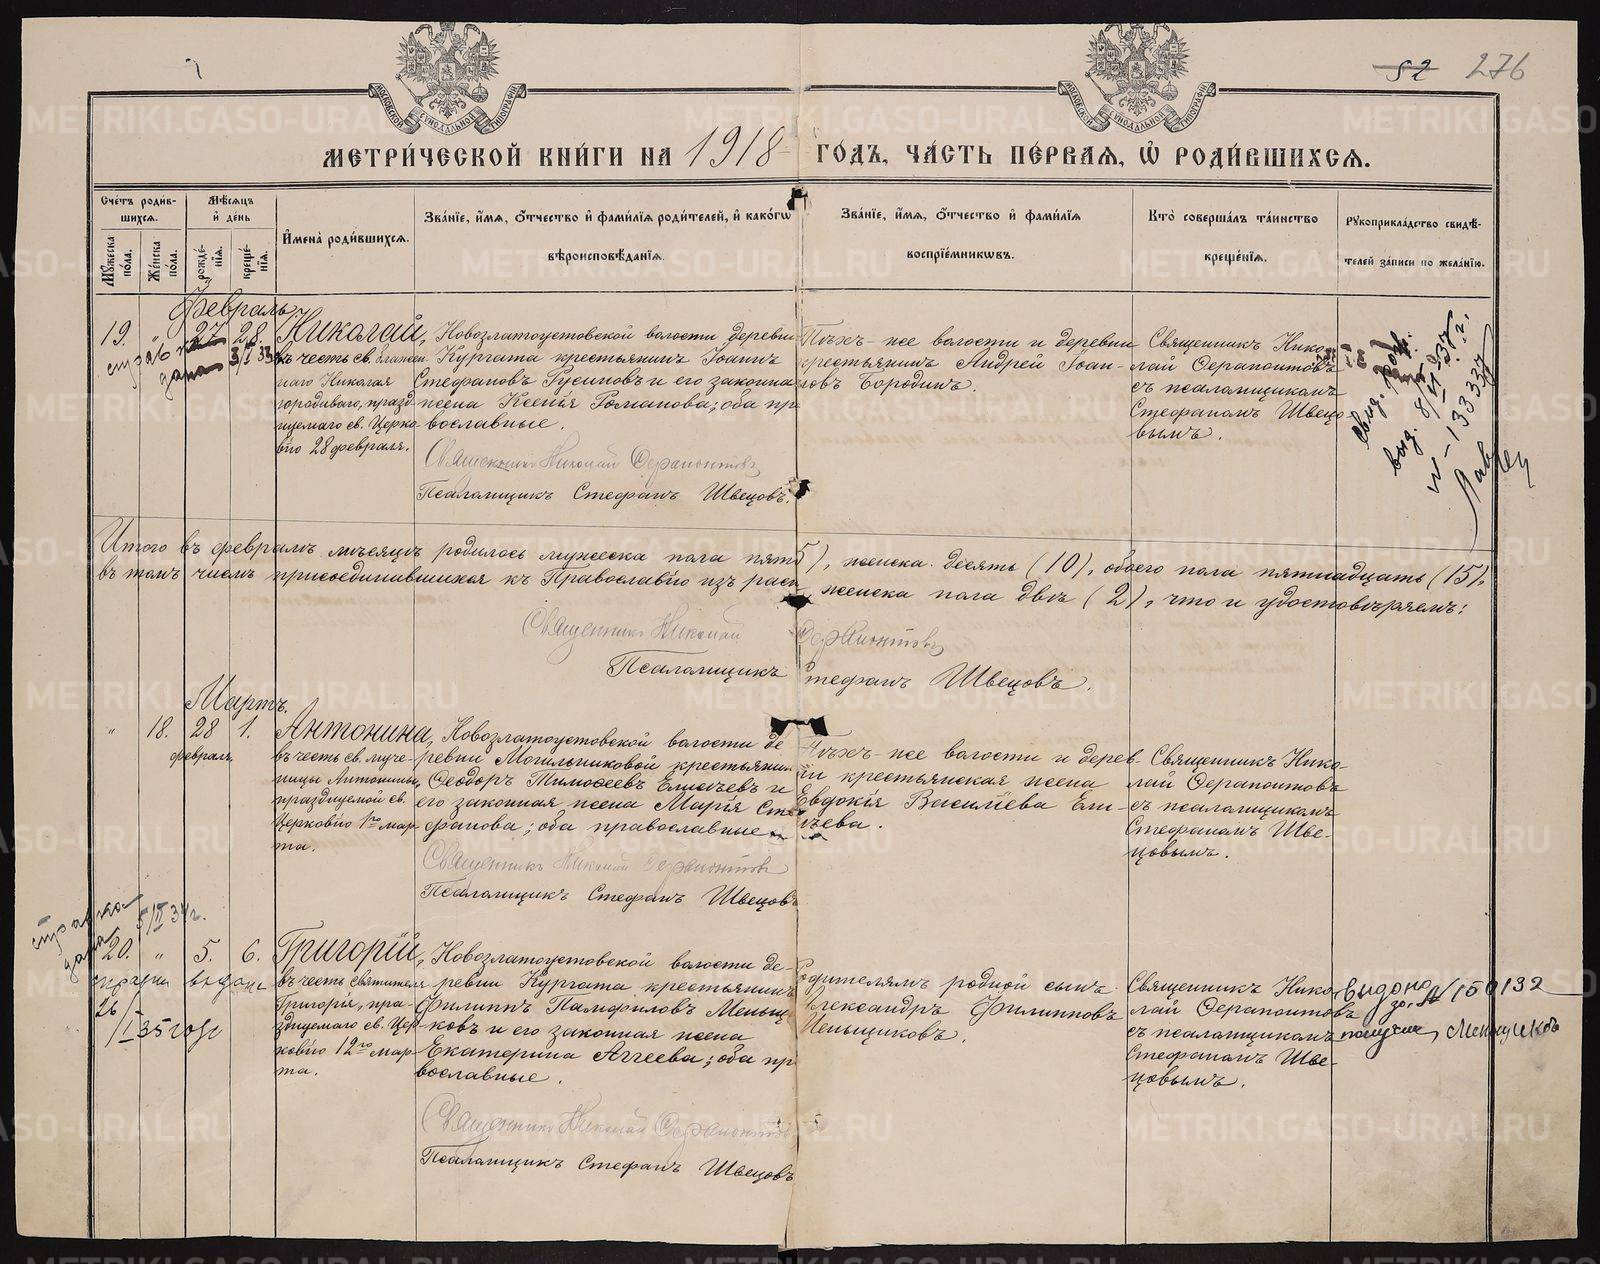 52 276
МОСКОВСКОЙ СѴНОДАЛЬНОЙ ТИПОГРАФІИ
МОСКОВСКОЙ СѴНОДАЛЬНОЙ ТИПОГРАФІИ
МЕТРИ́ЧЕСКОЙ КНИ́ГИ НА 1918 ГО́ДЪ, ЧА́СТЬ ПЕ́РВАЯ, Ѡ҆ РОДИ́ВШИХСЯ.
Сче́тъ роди́в-
шихся.
Мѣ́сяцъ
и҆ де́нь
Мꙋ́жеска
по́ла.
Же́нска
по́ла.
рожде́-
нїѧ.
креще́-
нїѧ.
И҆мена̀ роди́вшихся.
Зва́нїе, и҆́мѧ, ѻ҆́тчество и҆ фами́лїѧ роди́телей, и҆ како́гѡ
вѣроисповѣ́данїѧ.
Зва́нїе, и҆́мѧ, ѻ҆́тчество и҆ фами́лїѧ
воспрїе́мникѡвъ.
Кто̀ соверша́лъ та́инство
креще́нїѧ.
Рꙋкоприкла́дство свидѣ́-
телей за́писи по жела́нїю.
Февраль
19. " 27 28. Николай,
въ честь св. Блажен
наго Николая
юродиваго, празд-
нуемаго св. Церко-
вію 28 февраля.
Новозлатоустовской волости деревни
Кургата крестьянинъ Іоаннъ
Стефановъ Русиновъ и его законная
жена Ксенія Романова; оба пр
вославные.
Священникъ Николай Серапіонтовъ
Псаломщикъ Стефанъ Швецовъ.
Тѣхъ-же волости и деревни
крестьянинъ Андрей Іоан-
новъ Бородинъ.
Священникъ Нико-
лай Серапонтовъ
съ псаломщикомъ
Стефаномъ Швецо
вымъ.
выд. 8/VI 37 г.
№ 133337
Итого въ февралѣ мѣсяцѣ родилось мужеска пола пять 5), женска десять (10), обоего пола пятнадцать (15),
въ томъ числѣ присоединившихся къ Православію изъ раск женска пола двѣ (2), что и удостовѣряемъ:
Священникъ Николай Серапіонтовъ
Псаломщикъ Стефанъ Швецовъ.
Мартъ.
" 18. 28 1.
февраля
Антонина,
въ честь св. муче-
ницы Антонины,
празднуемой св.
Церковію 1го мар-
та.
Новозлатоустовской волости де
ревни Могильниковой крестьянин
Ѳеодоръ Тимоѳеевъ Елисѣевъ и
его законная жена Марія Сте
фанова; оба православные
Священникъ Николай Серапіонтовъ
Псаломщикъ Стефанъ Швецовъ
Тѣхъ-же волости и дерев-
ни крестьянская жена
Евдокія Васильева Ели-
сѣева.
Священникъ Нико-
лай Серапонтовъ
съ псаломщикомъ
Стефаномъ Шве-
цовымъ.
справка 5/II 34 г.
дана
20. " 5. 6. Григорій,
справка выдана
26/I 35 года
въ честь святителя
Григорія, пра-
зднуемаго св. Цер-
ковію 12го мар-
та.
Новозлатоустовской волости де-
ревни Кургата крестьянинъ
Филиппъ Памфиловъ Меньщ
ковъ и его законная жена
Екатерина Аггеева; оба пр
вославные.
Священникъ Николай Серапіонтовъ
Псаломщикъ Стефанъ Швецовъ
Родителямъ родной сынъ
Александръ Филипповъ
Меньщиковъ.
Священникъ Нико-
лай Серапонтовъ
съ псаломщикомъ
Стефаномъ Шве-
цовымъ.
Выдано
за № 150132
получил, Меншиков
METRIKI.GASO-URAL.RU